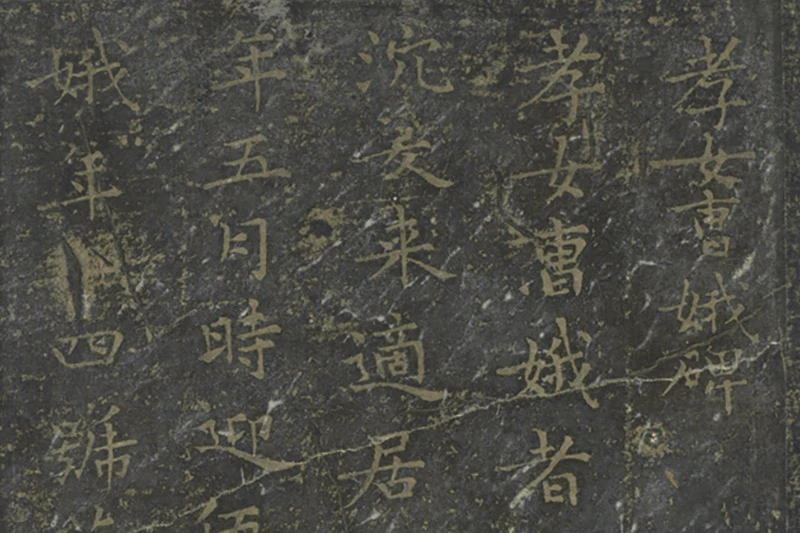 孝女曹娥碑
孝女曹娥者
沉爰来適居
年五月時迎
娥年四號